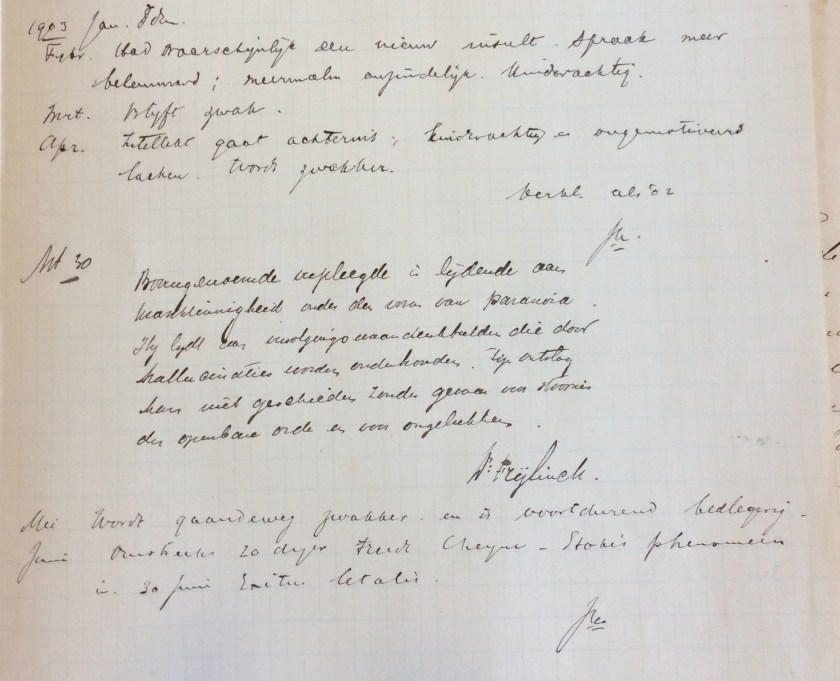 1903 Jan. Idem.
Febr. Had waarschijnlijk een nieuw insult. Spraak meer
belemmerd; meermalen onzindelijk. Kinderachtig.
Mrt. Blijft zwak.
Apr. Intellect gaat achteruit; kinderachtig en ongemotiveerd
lachen. Wordt zwakker.
Verkl. als o
Mt 30
Bovengenoemde verpleegde is lijdende aan
krankzinnigheid onder den vorm van paranoia.
Hij lijdt aan vervolgingswaandenkbeelden die door
hallucinaties worden onderhouden. Zijn ontslag
kan niet geschieden zonder gevaar voor stoornis
der openbare orde en voor ongelukken.
Dr. Frijlinck.
Mei Wordt gaandeweg zwakker en is voortdurend bedlegerig.
Juni Omstreeks 20 dezer treedt Cheyne-Stokes phenomeen
in. 30 Juni Exitus letalis.